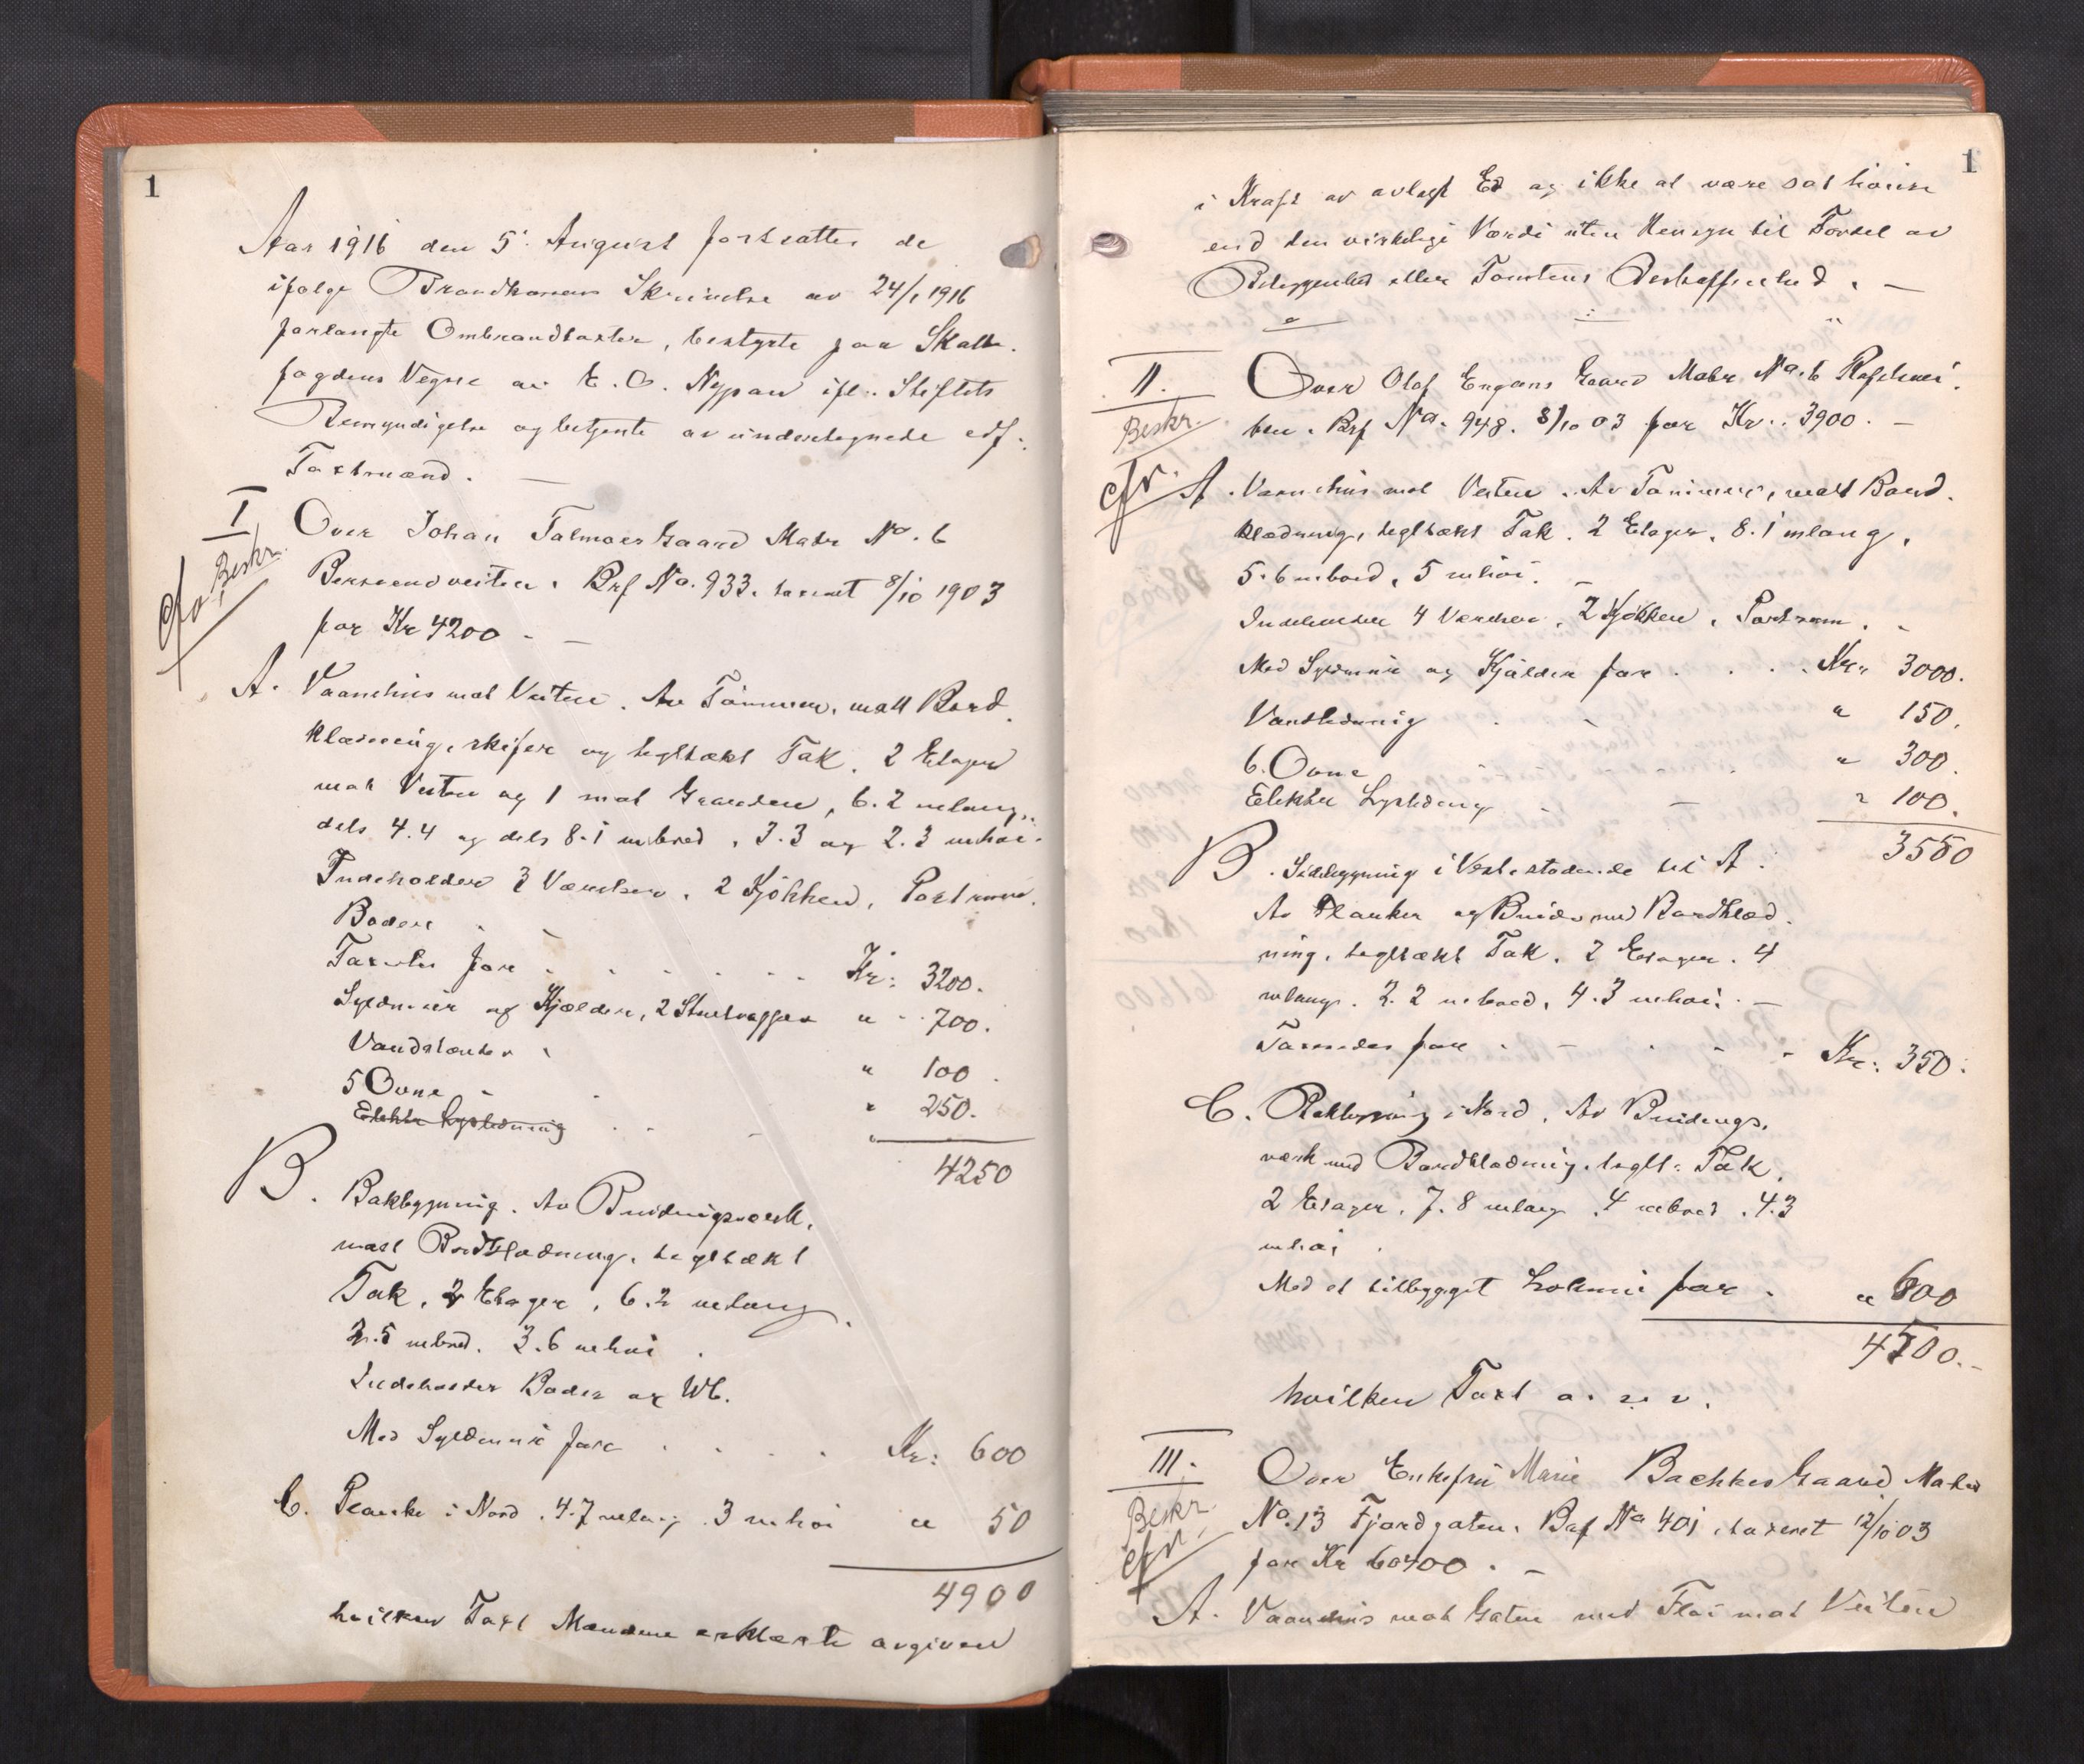 1
Aar 1916 den 5' August fortsattes de
ifølge Brandkassens Skrivelse av 24/1 1916
forlangte Ombrandtaxter, bestyrte paa Skatte-
fogdens Vegne av E. O. Nypan ifl. Stiftets
Bemyndigelse og betjente av undertegnede edf.
Taxtmænd. —
I Over Johan Talmoes Gaard Matr No. 6
Beskr.
Brf No. 933. taxeret 8/10 1903
for Kr 4200 - —
A. Vaanehus mot Veiten. Av Tømmer, malt Bord-
klædning, skifer og tegltækt Tak. 2 Etager
mot Veiten og 1 mot Gaarden, 6.2 m lang,
dels 4.4 og dels 8.1 m bred, 3.3 og 2.3 m høi.
Indeholder 3 Værelser, 2 Kjøkken, Portrum,
Boder.
Taxeredes for . . . . . . Kr: 3200.
Syldmur og Kjælder, 2 Støtvægger " - 700.
" 100.
5 Ovne - " 250.
Elektr Lysledning
4250
B. Bakbygning. Av Bindingsverk,
malt Bordklædning, tegltækt
Tak, 2 Etager, 6.2 m lang,
2.5 m bred. 3.6 m høi.
Indeholder Boder og Wc.
Med Syldmur for . . . . Kr: 600
C. Planke i Nord. 4.7 m lang 3 m høi " 50
4900
hvilken Taxt Mændene erklærte avgiven
1
i Kraft av avlagt Ed og ikke at være sat høiere
end den virkelige Værdi uten Hensyn til Fordel av
Beliggenhed eller Tomtens Beskaffenhed. —
II. Over Olaf Engens Gaard Matr No. 6
Beskr. Brf No. 948. 8/10 03 for Kr. 3900. —
A. Vaanehus mot Veiten. Av Tømmer, malt Bord-
klædning, tegltækt Tak. 2 Etager, 8.1 m lang,
5.6 m bred, 5 m høi. —
Indeholder 4 Værelser, 2 Kjøkken, Portrum. -
Med Syldmur og Kjælder for . . . Kr. 3000.
Vandledning . - " 150.
6 Ovne " 300.
Elektr Lysledning - — " 100.
3550
B. Sidebygning i Vest støtende til A.
Av Planker og Bindv med Bordklæd-
ning, tegltækt Tak. 2 Etager. 4
m lang. 2.2 m bred, 4.3 m høi. —
Taxeredes for . - . - - Kr: 350.
C. Bakbygning i Nord. Av Bindings-
verk med Bordklædning, teglt. Tak,
2 Etager. 7.8 m lang. 4 m bred. 4.3
m høi.
Med et tilbygget Lokum for . " 600
4500.-
hvilken Taxt o. s. v.
III. Over Enkefru Marie Bachkes Gaard Matr
Beskr. No. 13 Fjordgaten. Brf No 401, taxeret 12/10 03
for Kr 60400. —
A. Vaanehus mot Gaten med Fløi mot Veiten